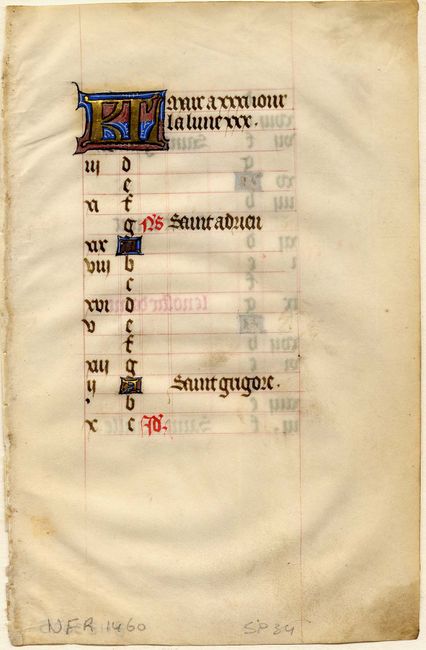 KL Mars a xxxi iour
la lune xxx.
iii d
e
xi f
g Ns Saint adrien
xix A
viii b
c
xvi d
v e
f
xiii g
ii A Saint grigore.
b
x c Id.
NFR 1460 SP34